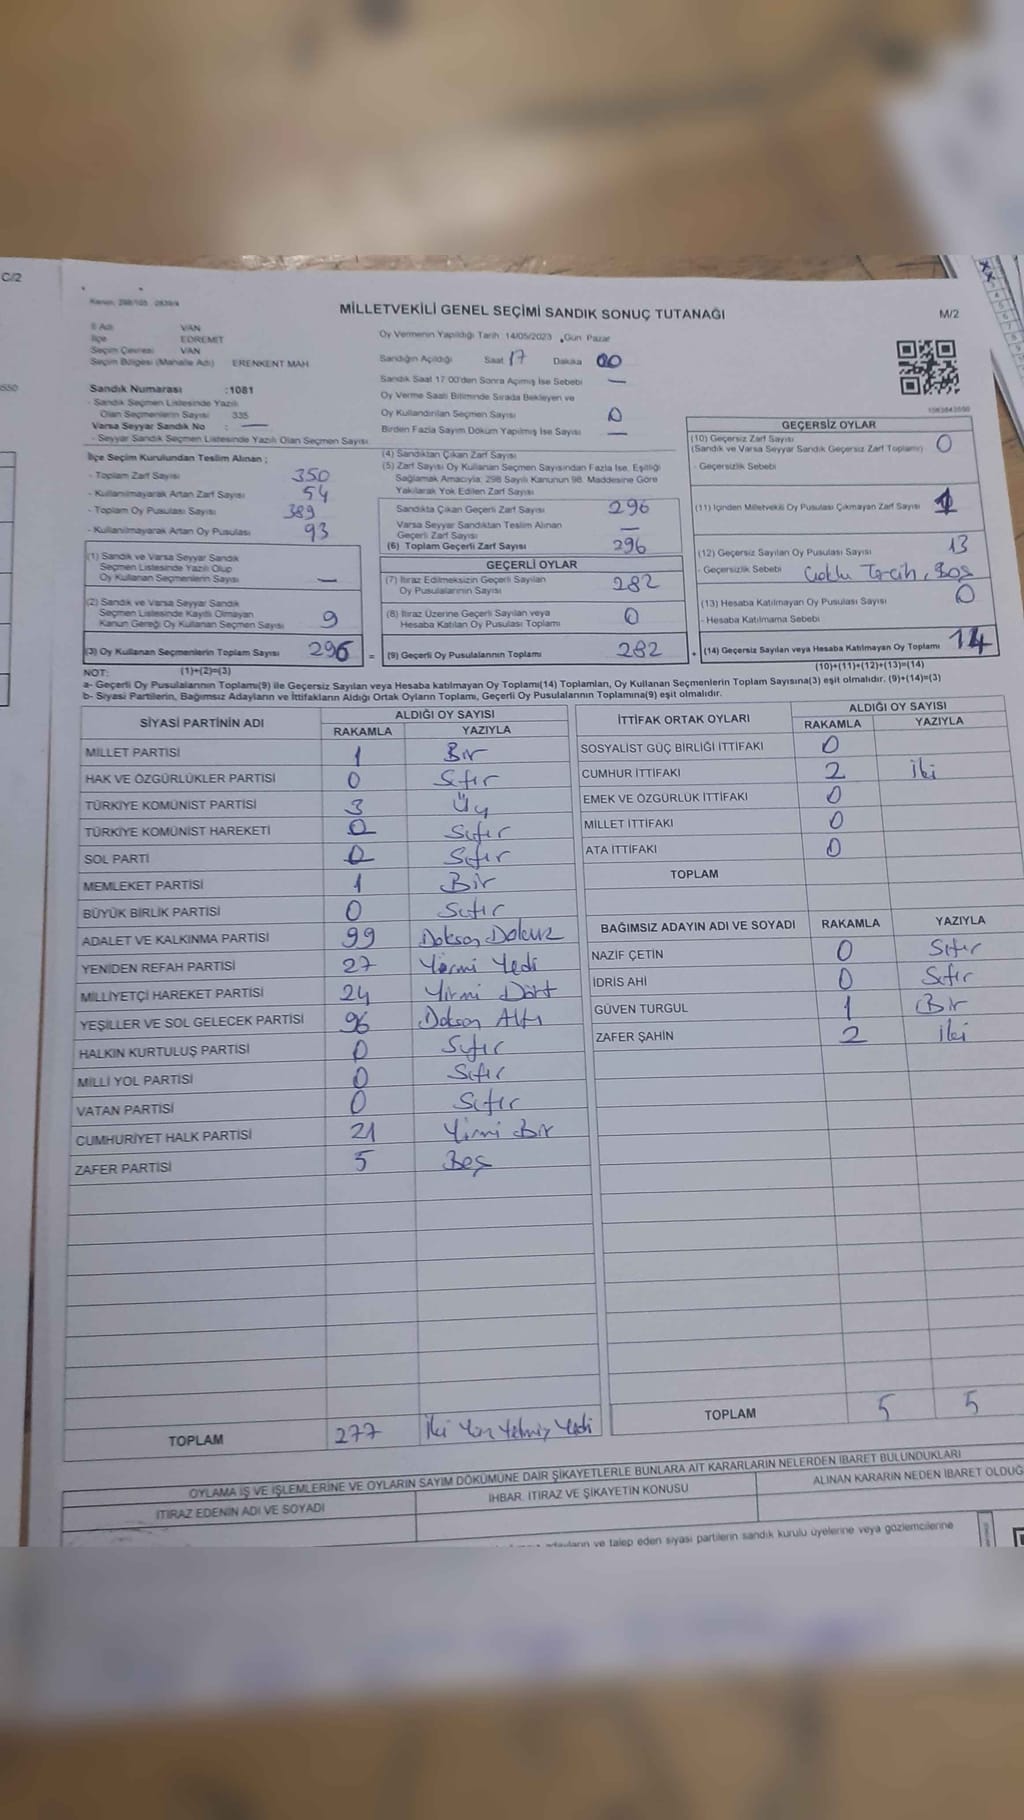 C/2
Kanun: 298/105
MİLLETVEKİLİ GENEL SEÇİMİ SANDIK SONUÇ TUTANAĞI
M/2
İl Adı VAN
İlçe EDREMIT
Seçim Çevresi VAN
Seçim Bölgesi (Mahalle Adı) ERENKENT MAH
Oy Vermenin Yapıldığı Tarih 14/05/2023 Gün Pazar
Sandığın Açıldığı Saat 17 Dakika 00
Sandık Saat 17.00'den Sonra Açılmış İse Sebebi —
Oy Verme Saati Bitiminde Sırada Bekleyen ve
Oy Kullandırılan Seçmen Sayısı 0
Birden Fazla Sayım Döküm Yapılmış İse Sayısı —
Sandık Numarası :1081
- Sandık Seçmen Listesinde Yazılı
Olan Seçmenlerin Sayısı 335
Varsa Seyyar Sandık No : —
- Seyyar Sandık Seçmen Listesinde Yazılı Olan Seçmen Sayısı
İlçe Seçim Kurulundan Teslim Alınan ;
- Toplam Zarf Sayısı 350
- Kullanılmayarak Artan Zarf Sayısı 54
- Toplam Oy Pusulası Sayısı 389
- Kullanılmayarak Artan Oy Pusulası 93
(1) Sandık ve Varsa Seyyar Sandık
Seçmen Listesinde Yazılı Olup
Oy Kullanan Seçmenlerin Sayısı —
(2) Sandık ve Varsa Seyyar Sandık
Seçmen Listesinde Kayıtlı Olmayan
Kanun Gereği Oy Kullanan Seçmen Sayısı 9
(3) Oy Kullanan Seçmenlerin Toplam Sayısı 296 =
(1)+(2)=(3)
(4) Sandıktan Çıkan Zarf Sayısı
(5) Zarf Sayısı Oy Kullanan Seçmen Sayısından Fazla İse, Eşitliği
Sağlamak Amacıyla, 298 Sayılı Kanunun 98. Maddesine Göre
Yakılarak Yok Edilen Zarf Sayısı
Sandıkta Çıkan Geçerli Zarf Sayısı 296
Varsa Seyyar Sandıktan Teslim Alınan
Geçerli Zarf Sayısı —
(6) Toplam Geçerli Zarf Sayısı 296
GEÇERLİ OYLAR
(7) İtiraz Edilmeksizin Geçerli Sayılan
Oy Pusulalarının Sayısı 282
(8) İtiraz Üzerine Geçerli Sayılan veya
Hesaba Katılan Oy Pusulası Toplamı 0
(9) Geçerli Oy Pusulalarının Toplamı 282 +
GEÇERSİZ OYLAR
(10) Geçersiz Zarf Sayısı
(Sandık ve Varsa Seyyar Sandık Geçersiz Zarf Toplamı) 0
- Geçersizlik Sebebi
(11) İçinden Milletvekili Oy Pusulası Çıkmayan Zarf Sayısı 1
(12) Geçersiz Sayılan Oy Pusulası Sayısı 13
- Geçersizlik Sebebi Çoklu Tercih, Boş
(13) Hesaba Katılmayan Oy Pusulası Sayısı 0
- Hesaba Katılmama Sebebi
(14) Geçersiz Sayılan veya Hesaba Katılmayan Oy Toplamı 14
(10)+(11)+(12)+(13)=(14)
NOT:
a- Geçerli Oy Pusulalarının Toplamı(9) ile Geçersiz Sayılan veya Hesaba katılmayan Oy Toplamı(14) Toplamları, Oy Kullanan Seçmenlerin Toplam Sayısına(3) eşit olmalıdır. (9)+(14)=(3)
b- Siyasi Partilerin, Bağımsız Adayların ve İttifakların Aldığı Ortak Oyların Toplamı, Geçerli Oy Pusulalarının Toplamına(9) eşit olmalıdır.
SİYASİ PARTİNİN ADI ALDIĞI OY SAYISI
RAKAMLA YAZIYLA
MİLLET PARTİSİ 1 Bir
HAK VE ÖZGÜRLÜKLER PARTİSİ 0 Sıfır
TÜRKİYE KOMÜNİST PARTİSİ 3 Üç
TÜRKİYE KOMÜNİST HAREKETİ 0 Sıfır
SOL PARTİ 0 Sıfır
MEMLEKET PARTİSİ 1 Bir
BÜYÜK BİRLİK PARTİSİ 0 Sıfır
ADALET VE KALKINMA PARTİSİ 99 Doksan Dokuz
YENİDEN REFAH PARTİSİ 27 Yirmi Yedi
MİLLİYETÇİ HAREKET PARTİSİ 24 Yirmi Dört
YEŞİLLER VE SOL GELECEK PARTİSİ 96 Doksan Altı
HALKIN KURTULUŞ PARTİSİ 0 Sıfır
MİLLİ YOL PARTİSİ 0 Sıfır
VATAN PARTİSİ 0 Sıfır
CUMHURİYET HALK PARTİSİ 21 Yirmi Bir
ZAFER PARTİSİ 5 Beş
TOPLAM 277 İki Yüz Yetmiş Yedi
İTTİFAK ORTAK OYLARI ALDIĞI OY SAYISI
RAKAMLA YAZIYLA
SOSYALİST GÜÇ BİRLİĞİ İTTİFAKI 0
CUMHUR İTTİFAKI 2 İki
EMEK VE ÖZGÜRLÜK İTTİFAKI 0
MİLLET İTTİFAKI 0
ATA İTTİFAKI 0
TOPLAM
BAĞIMSIZ ADAYIN ADI VE SOYADI RAKAMLA YAZIYLA
NAZİF ÇETİN 0 Sıfır
İDRİS AHİ 0 Sıfır
GÜVEN TURGUL 1 Bir
ZAFER ŞAHİN 2 İki
TOPLAM 5 5
OYLAMA İŞ VE İŞLEMLERİNE VE OYLARIN SAYIM DÖKÜMÜNE DAİR ŞİKAYETLERLE BUNLARA AİT KARARLARIN NELERDEN İBARET BULUNDUKLARI
İTİRAZ EDENİN ADI VE SOYADI İHBAR, İTİRAZ VE ŞİKAYETİN KONUSU ALINAN KARARIN NEDEN İBARET OLDUĞ
ve talep eden siyasi partilerin sandık kurulu üyelerine veya gözlemcilerine